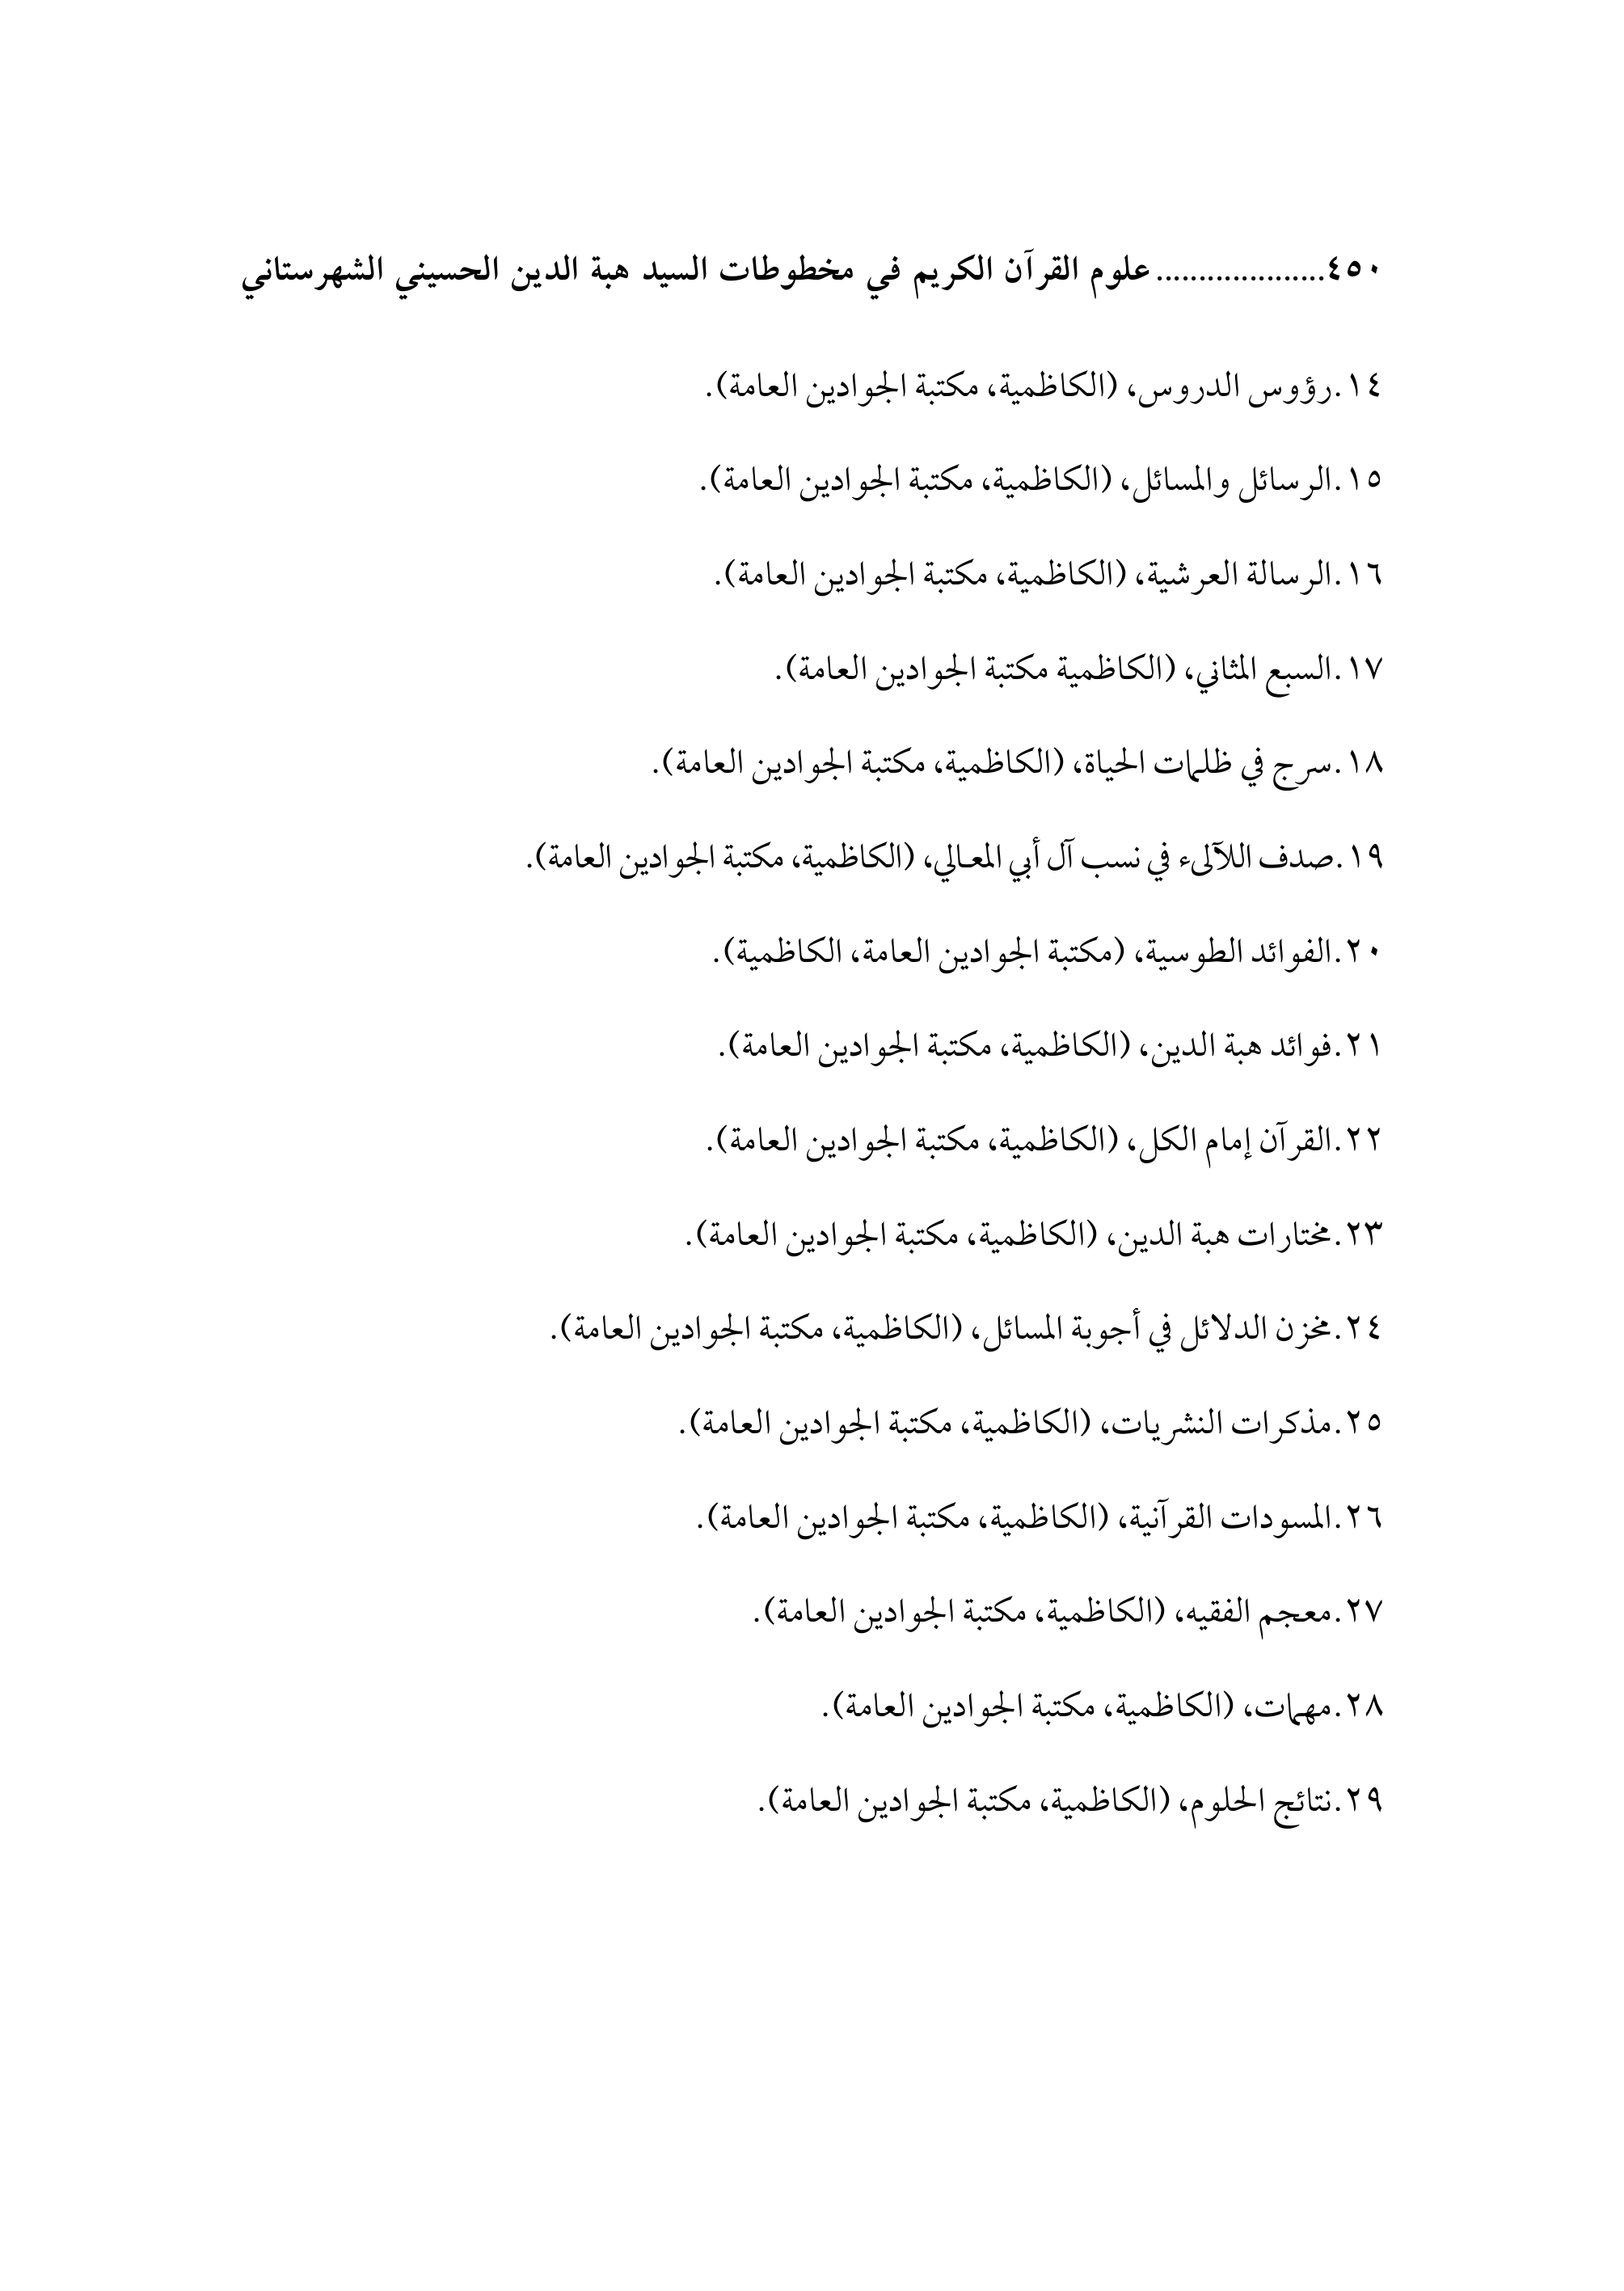 ٤٥٠....................علوم القرآن الكريم في مخطوطات السيد هبة الدين الحسيني الشهرستاني
١٤.رؤوس الدروس، (الكاظمية، مكتبة الجوادين العامة).
١٥.الرسائل والمسائل، (الكاظمية، مكتبة الجوادين العامة).
١٦.الرسالة العرشية، (الكاظمية، مكتبة الجوادين العامة).
١٧.السبع المثاني، (الكاظمية مكتبة الجوادين العامة).
١٨.سرج في ظلمات الحياة، (الكاظمية، مكتبة الجوادين العامة).
١٩.صدف اللآلىء في نسب آل أبي المعالي، (الكاظمية، مكتبة الجوادين العامة).
٢٠.الفوائد الطوسية، (مكتبة الجوادين العامة، الكاظمية).
٢١.فوائد هبة الدين، (الكاظمية، مكتبة الجوادين العامة).
٢٢.القرآن إمام الكل، (الكاظمية، مكتبة الجوادين العامة).
٢٣.مختارات هبة الدين، (الكاظمية، مكتبة الجوادين العامة).
٢٤.مخزن الدلائل في أجوبة المسائل، (الكاظمية، مكتبة الجوادين العامة).
٢٥.مذكرات النشريات، (الكاظمية، مكتبة الجوادين العامة).
٢٦.المسودات القرآنية، (الكاظمية، مكتبة الجوادين العامة).
٢٧.معجم الفقيه، (الكاظمية، مكتبة الجوادين العامة).
٢٨.مهمات، (الكاظمية، مكتبة الجوادين العامة).
٢٩.نتائج الحلوم، (الكاظمية، مكتبة الجوادين العامة).